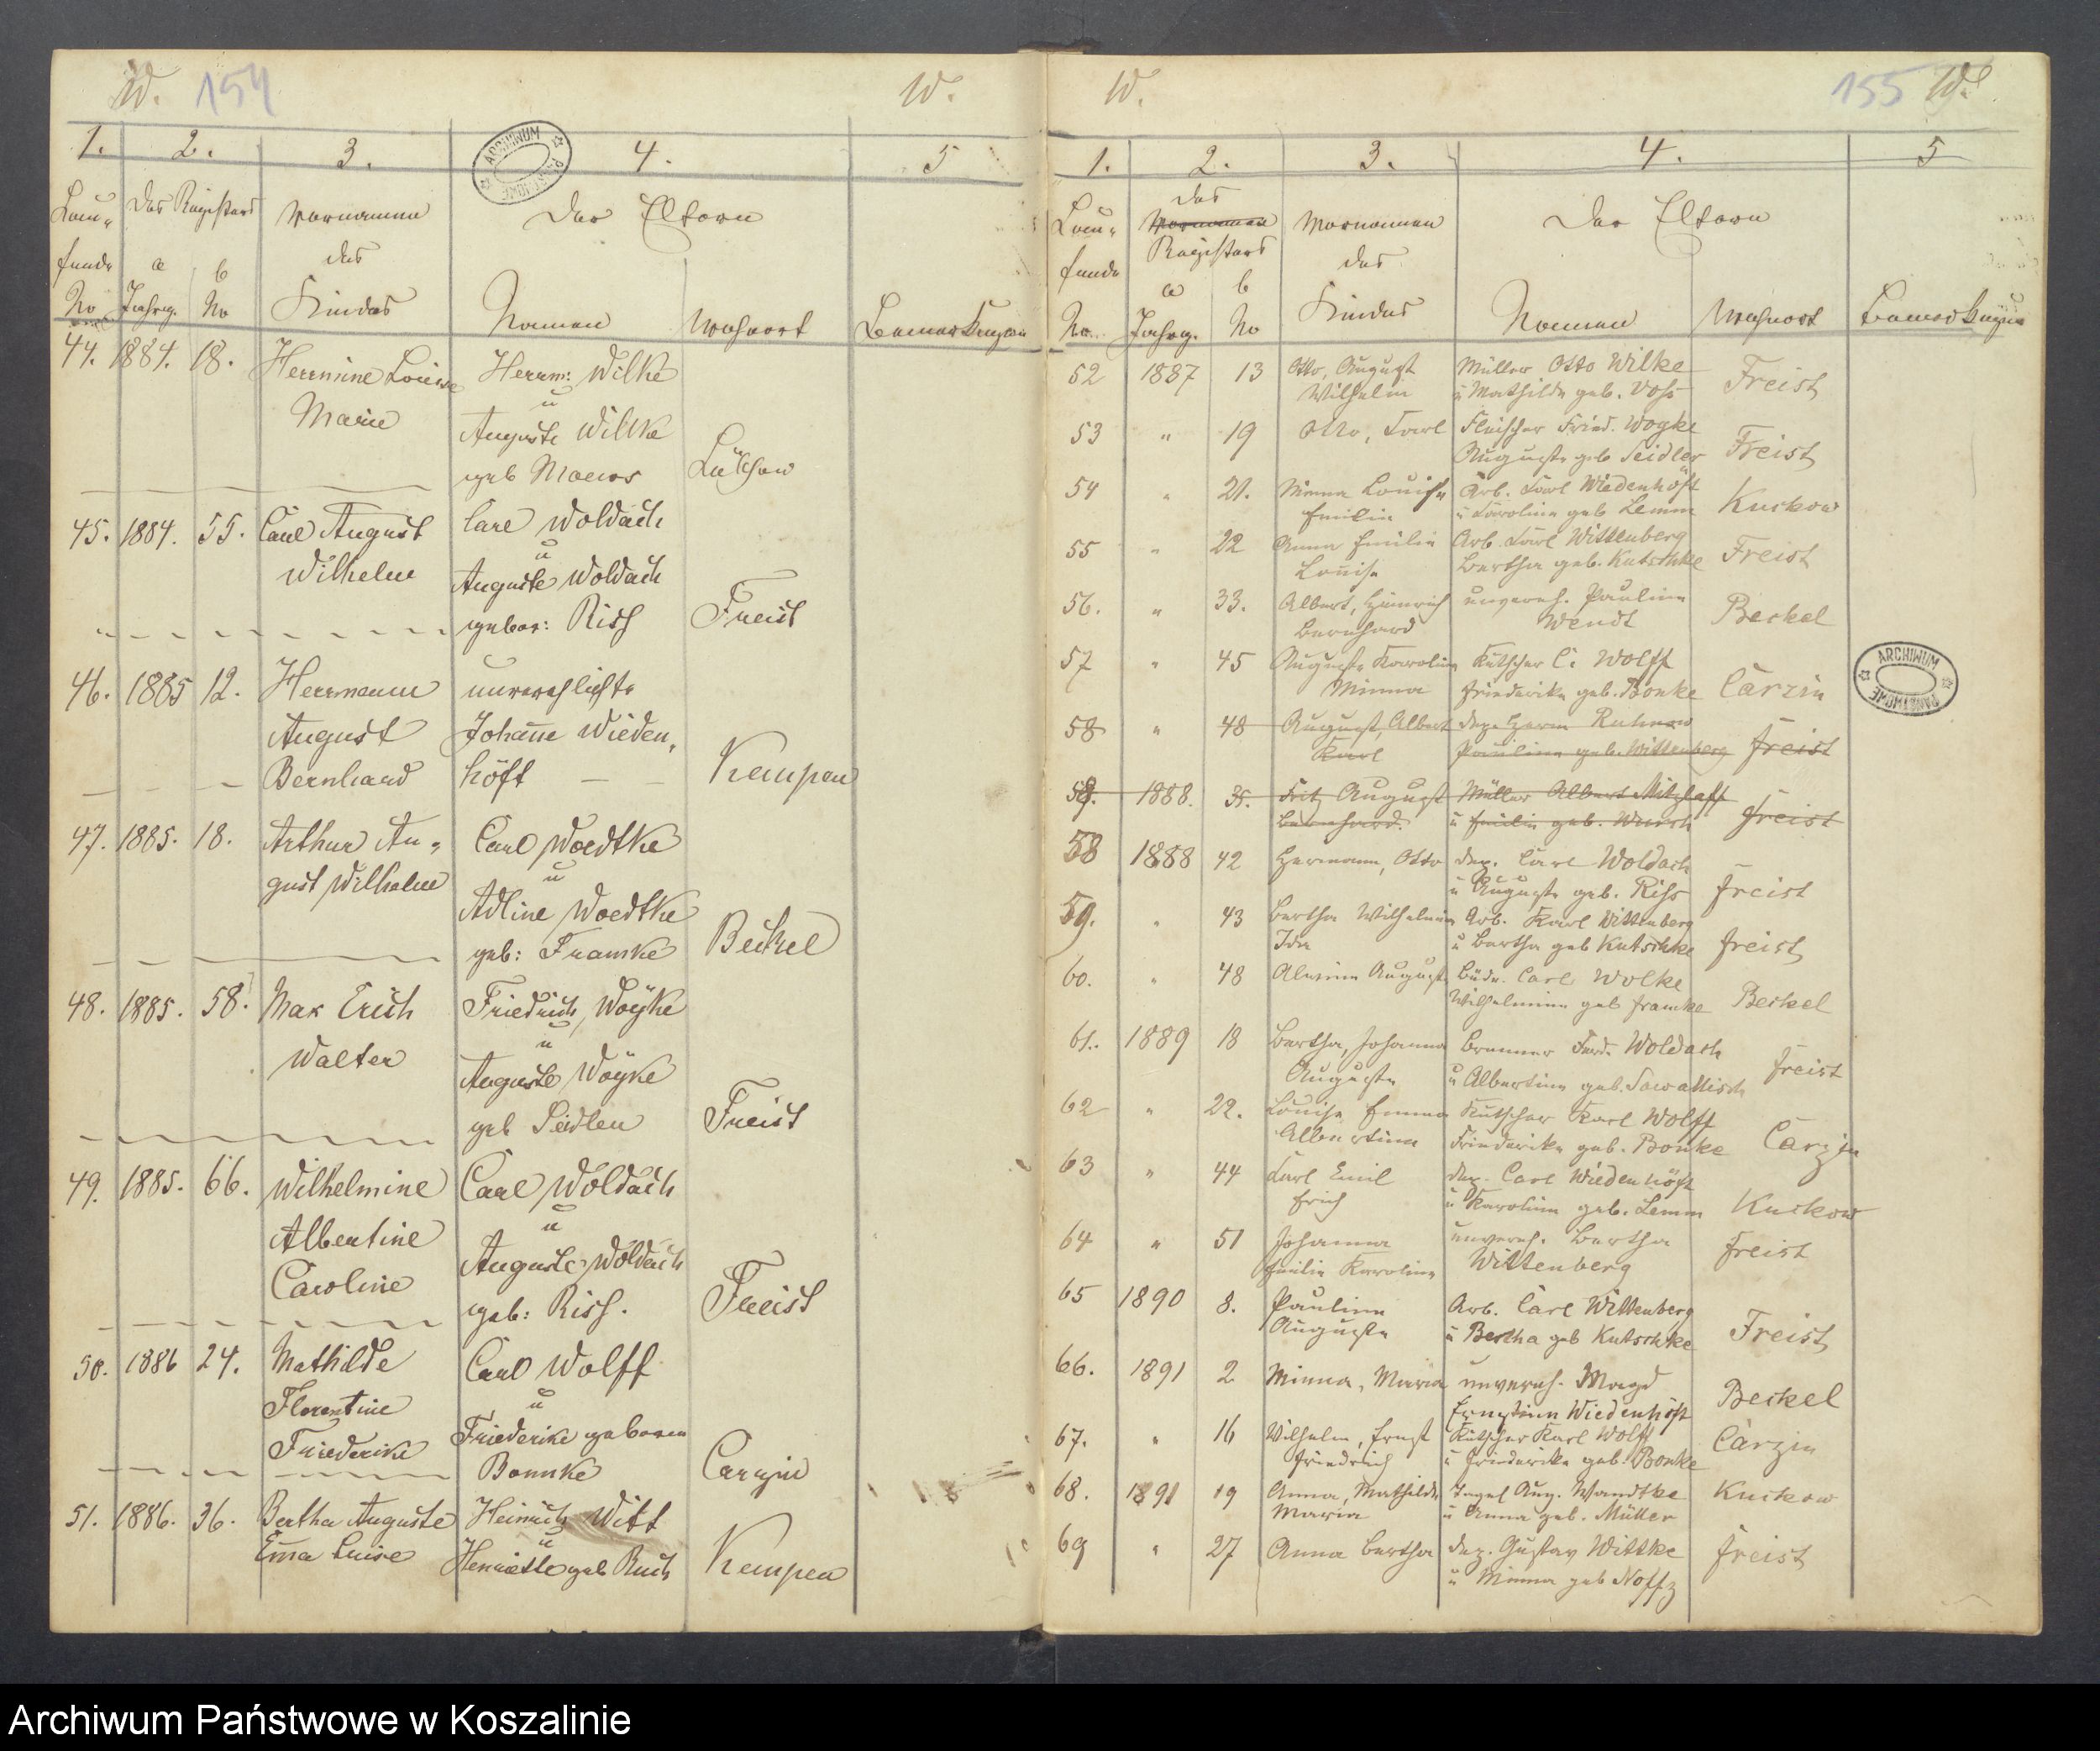 W. 154 W.
1. 2. 3. 4. 5
Lau- des Registers Vornamen Der Eltern
fende a b des
No Jahrg. No Kindes Namen Wohnort Bemerkungen
44. 1884. 18. Herrmine Louise Herrm: Wilke
u
Marie Auguste Wilke
geb
45. 1884. 55. Carl August Carl Woldach
u
Wilhelm Auguste Woldach
gebor: Riss Freist
46. 1885 12. Herrmann unverehlichte
August Johanne Wieden-
Bernhard höft Kempen
47. 1885. 18. Arthur Au- Carl Woedtke
u
gust Wilhelm Adline Woedtke
geb: Framke Beckel
48. 1885. 58. Max Erich Friedrich Woÿke
u
Walter Auguste Woÿke
geb Seidler Freist
49. 1885. 66. Wilhelmine Carl Woldach
u
Albertine Auguste Woldach
Caroline geb: Riss. Freist
50. 1886 24. Mathilde Carl Wolff
u
Florentine Friederike geboren
Friederike Bonnke Carzin
51. 1886. 36. Bertha Auguste Heinrich Witt
u
Emma Luise Henriette geb Ruch Kempen
W. 155 W.
1. 2. 3. 4. 5
des
Lau- Vornamen Vornamen Der Eltern
fende Registers des
a b
No. Jahrg. No Kindes Namen Wohnort Bemerkungen
52 1887 13 Otto, August Müller Otto Wilke Freist
Wilhelm u Mathilde geb. Voß
53 " 19 Otto, Carl Fleischer Fried. Woyke Freist
Auguste geb Seidler
54 " 21. Minna Louise Arb. Carl Wiedenhöft Kuskow
Emilie u Karoline geb Lemm
55 " 22 Anna Emilie Arb. Carl Wittenberg Freist
Louise Bertha geb. Kutschke
56. " 33. Albert, Heinrich unvereh. Pauline Beckel
Bernhard Wendt
57 " 45 Auguste Karoline Kutscher C. Wolff Carzin
Minna Friederike geb. Bonke
58 " 48 August, Albert Herm Ruhnow Freist
Karl Pauline geb. Wittenberg
59. 1888. 35. Fritz August Müller Albert Mitzlaff Freist
Bernhard. u Emilie geb.
58 1888 42 Hermann, Otto Carl Woldach Freist
u Auguste geb. Riss
59. " 43 Bertha Wilhelmine Arb. Karl Wittenberg Freist
Ida u Bertha geb Kutschke
60. " 48 August Büdn. Carl Wolke Beckel
Wilhelmine geb Framke
61. 1889 18 Bertha, Johanna Brenner Ferd. Woldach Freist
Auguste u Albertine geb. Sawallisch
62 " 22. Louise Emma Kutscher Karl Wolff Carzin
Albertine Friederike geb. Bonke
63 " 44 Karl Emil Carl Wiedenhöft Kuskow
Erich u Karoline geb. Lemm
64 " 51 Johanna unvereh. Bertha Freist
Emilie Karoline Wittenberg
65 1890 8. Pauline Arb. Carl Wittenberg Freist
Auguste u Bertha geb Kutschke
66. 1891 2 Minna, Maria unvereh. Magd Beckel
Ernestine Wiedenhöft
67. " 16 Wilhelm, Ernst Kutscher Karl Wolff Carzin
Friedrich u Friederike geb. Bonke
68. 1891 19 Anna, Mathilde Aug. Wandtke Kuskow
Maria u Anna geb. Müller
69 " 27 Anna Bertha Gustav Wittke Freist
u Minna geb Noffz
ARCHIWUM PAŃSTWOWE
Archiwum Państwowe w Koszalinie